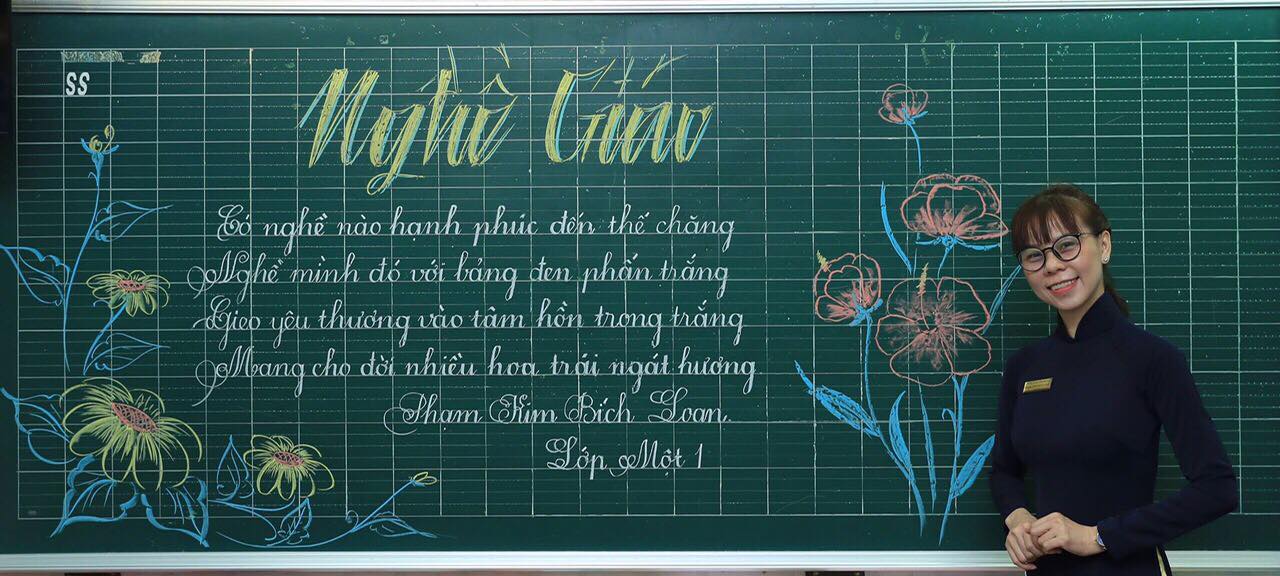 SS
Nghề Giáo
Có nghề nào hạnh phúc đến thế chăng
Nghề mình đó với bảng đen phấn trắng
Gieo yêu thương vào tâm hồn trong trắng
Mang cho đời nhiều hoa trái ngát hương
Phạm Kim Bích Loan.
Lớp Một 1